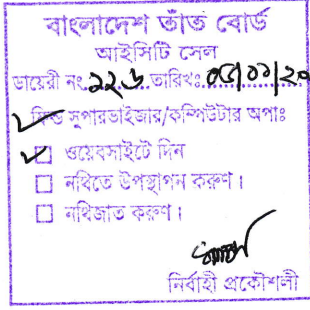 বাংলাদেশ তাঁত বোর্ড
আইসিটি সেল
ডায়েরী নং ২২৬ তারিখঃ
ফিল্ড সুপারভাইজার/কম্পিউটার অপাঃ
ওয়েবসাইটে দিন
নথিতে উপস্থাপন করুণ।
নথিজাত করুণ।
নির্বাহী প্রকৌশলী